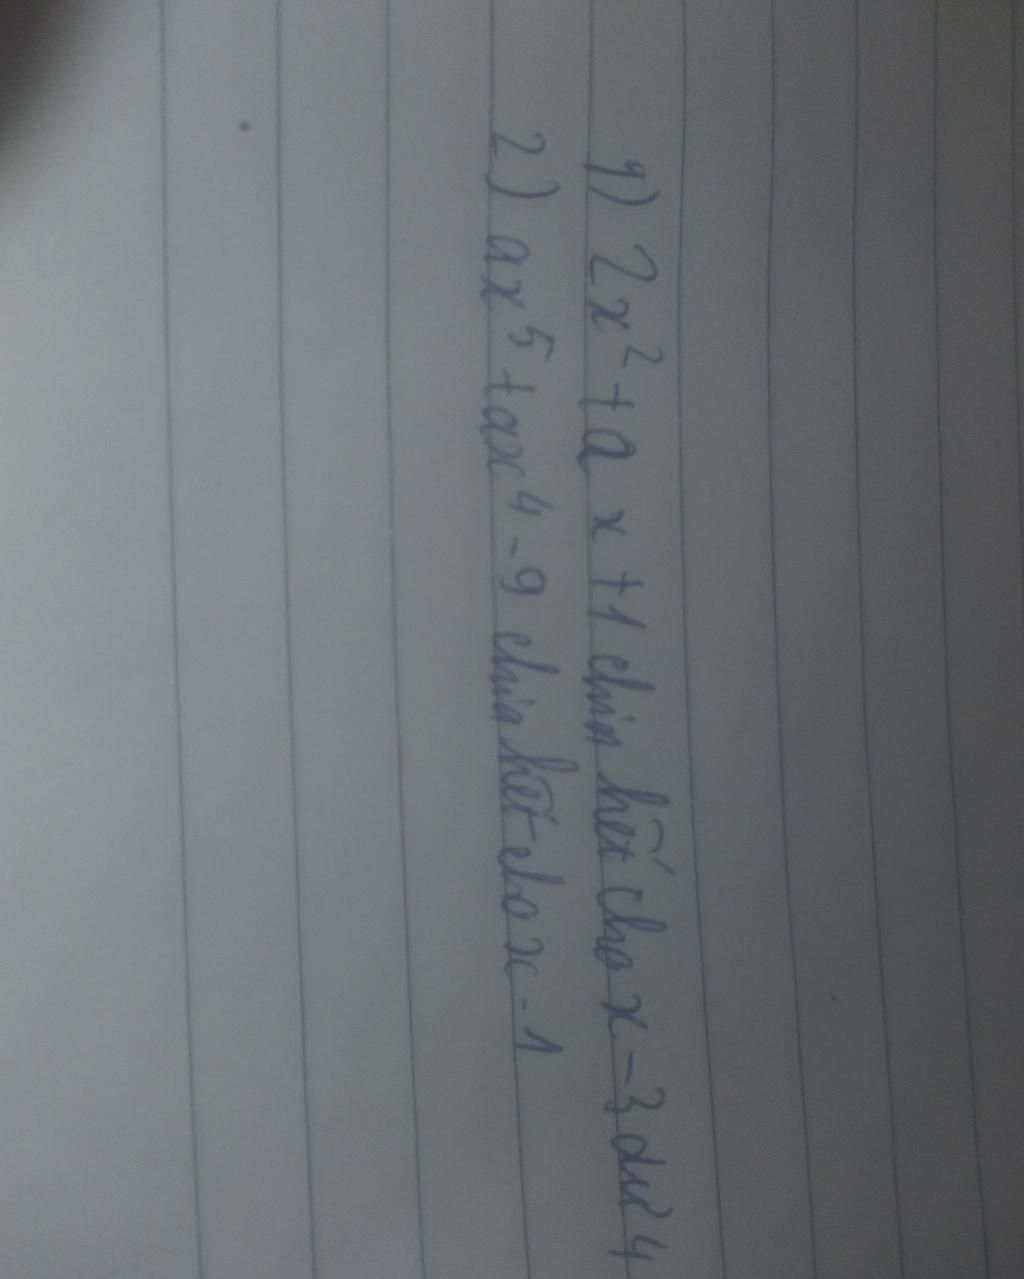 1) 2x² + a x + 1 chia hết cho x - 3 dư 4
2) ax⁵ + ax⁴ - 9 chia hết cho x - 1